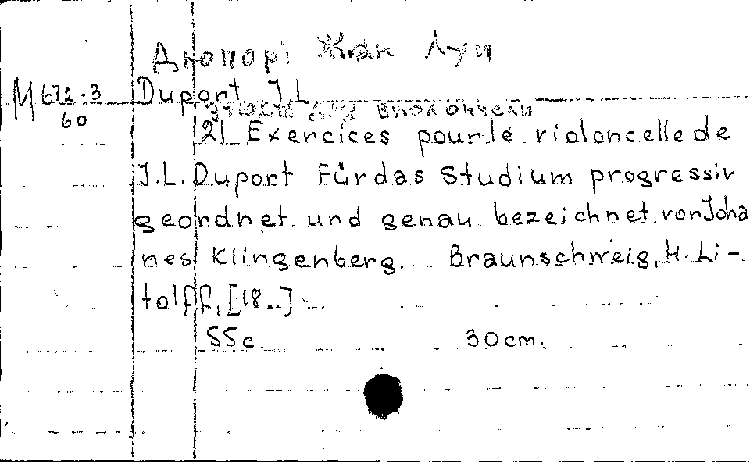 Дюпорі Жан Луи
M 672-3 Duport J.L.
60 этюды для виолончели
21 Exercices pour le violoncelle de
J.L. Duport Für das Studium progressiv
geordnet und genau bezeichnet von Joha
nes Klingenberg. Braunschweig, H. Li-
tolff, [18..]
55c 30cm.